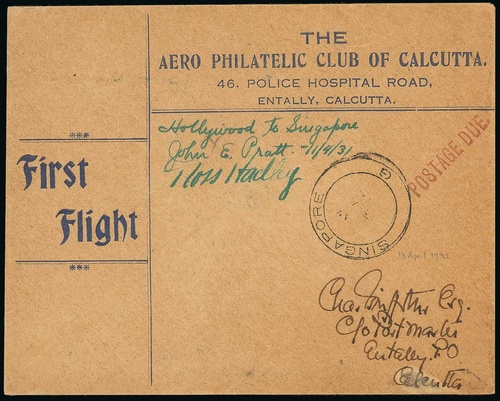 THE
AERO PHILATELIC CLUB OF CALCUTTA.
46, POLICE HOSPITAL ROAD,
ENTALLY, CALCUTTA.
Hollywood to Singapore
John E. Pratt - 11/4/31
Ross Hadley
POSTAGE DUE.
First
Flight
SINGAPORE G
13 April 1931
Esq.
C/o Post Master
Entally. P.O
Calcutta